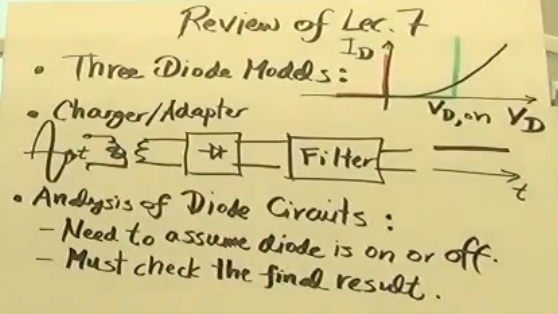 Review of Lec. 7
I_D
• Three Diode Models:
V_D,on V_D
• Charger/Adapter
t
Filter
t
• Analysis of Diode Circuits:
– Need to assume diode is on or off.
– Must check the final result.